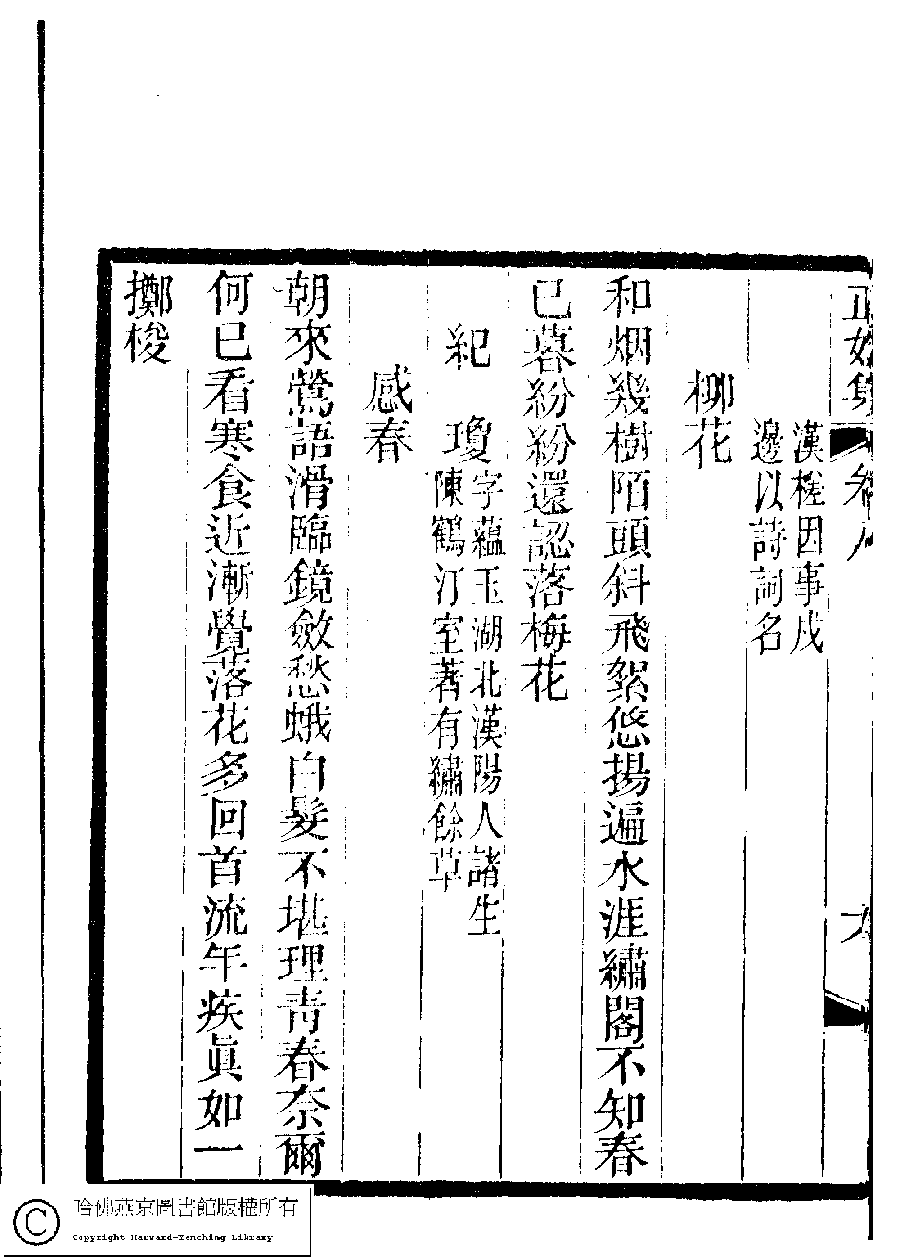 正始集
卷八
九
漢槎因事戍
邊以詩詞名
柳花
和烟幾樹陌頭斜飛絮悠揚遍水涯繡閣不知春
已暮紛紛還認落梅花
紀瓊
字蘊玉湖北漢陽人諸生
陳鶴汀室著有繡餘草
感春
朝來鶯語滑臨鏡斂愁蛾白髮不堪理青春奈爾
何已看寒食近漸覺落花多回首流年疾眞如一
擲梭
哈佛燕京圖書館版權所有
Copyright Harvard-Yenching Library